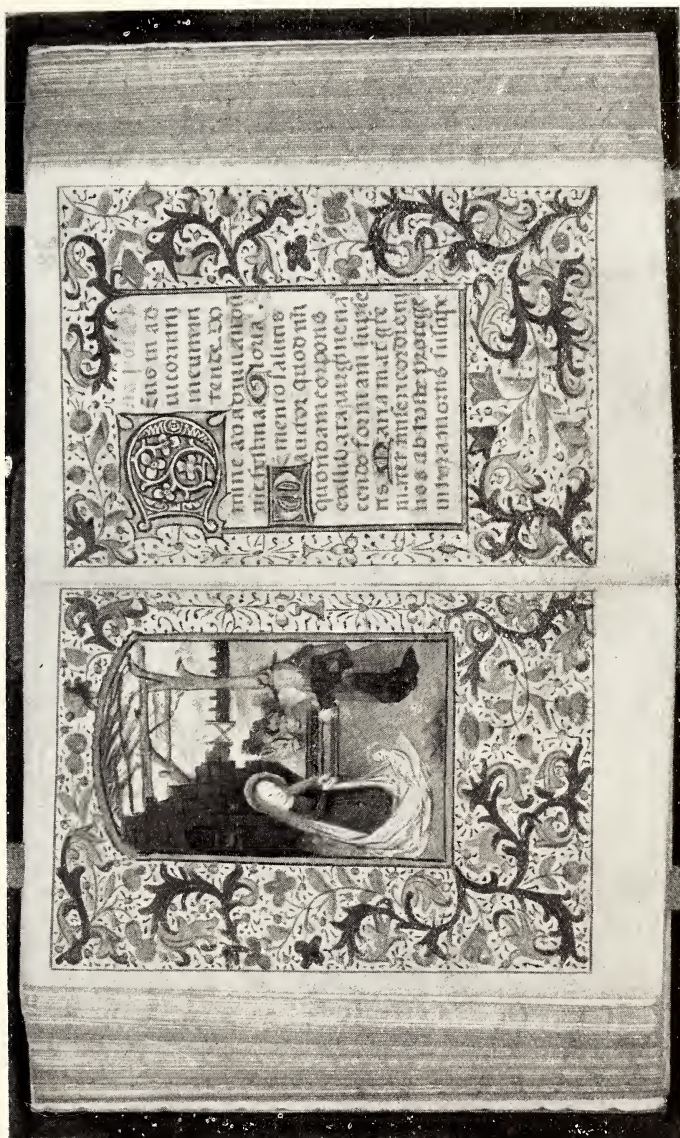 D Eus in ad
iutorium
meum in
tende Do
mine ad adiuuandum
me festina Gloria
Memento salutis
auctor quod nri
quondam corporis
ex illibata virgine na
scendo formam sumpse
ris Maria mater gre
mater misericordie tu
nos ab hoste protege
in hora mortis suscipe